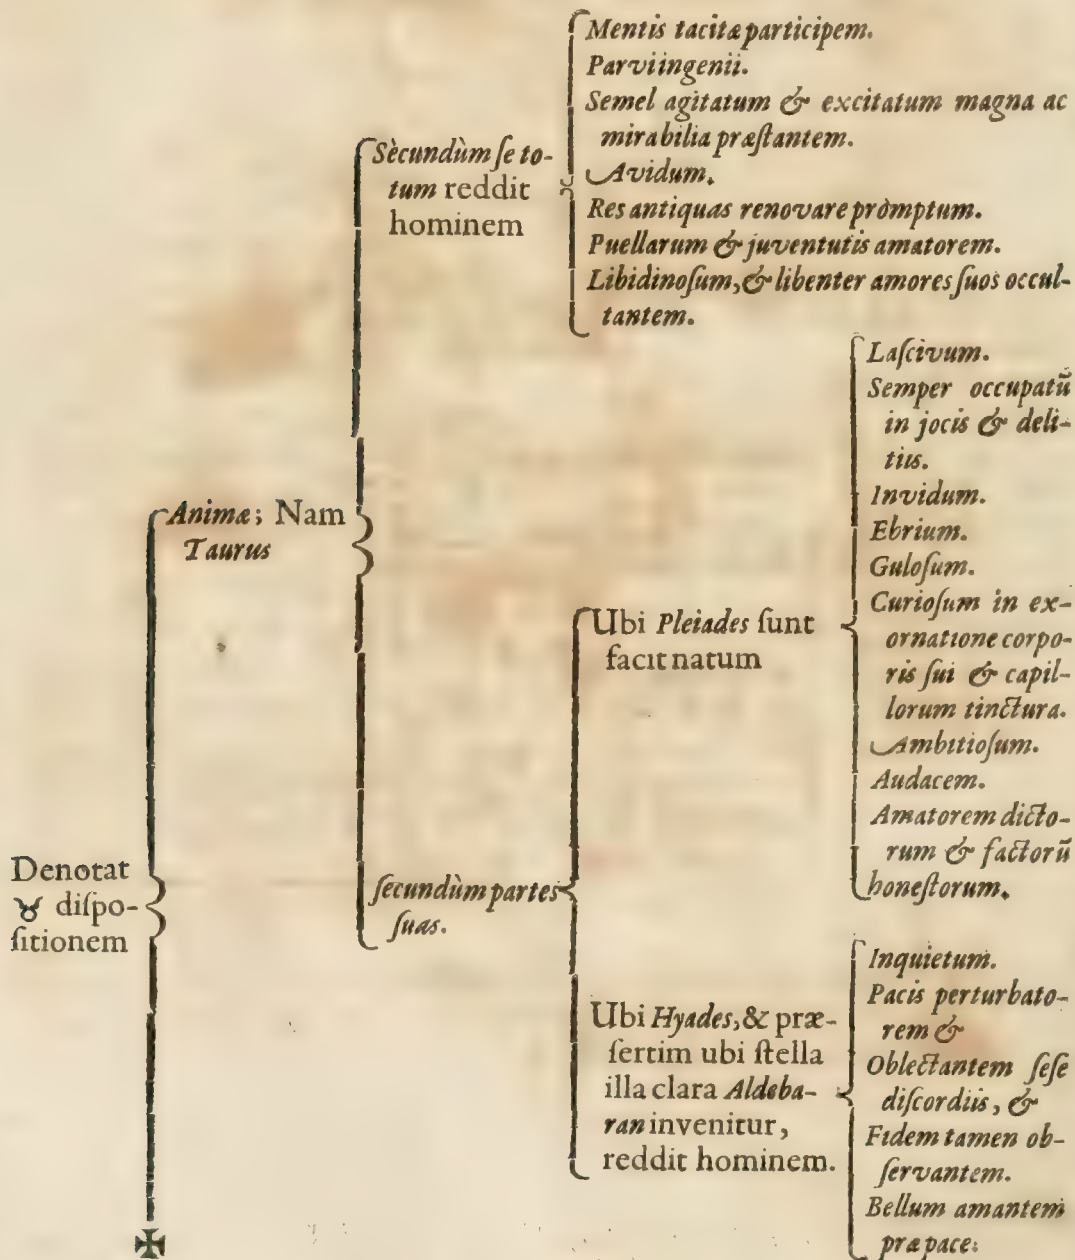 Denotat
♉ dispo-
sitionem
Animæ; Nam
Taurus
Sècundùm ſe to-
tum reddit
hominem
Mentis tacitæ participem.
Parvi ingenii.
Semel agitatum & excitatum magna ac
mirabilia præſtantem.
Avidum.
Res antiquas renovare pròmptum.
Puellarum & juventutis amatorem.
Libidinoſum, & libenter amores ſuos occul-
tantem.
ſecundùm partes
ſuas.
Ubi Pleiades ſunt
facit natum
Laſcivum.
Semper occupatū
in jocis & deli-
tiis.
Invidum.
Ebrium.
Guloſum.
Curioſum in ex-
ornatione corpo-
ris ſui & capil-
lorum tinctura.
Ambitioſum.
Audacem.
Amatorem dicto-
rum & factorū
honeſtorum.
Ubi Hyades, & præ-
ſertim ubi ſtella
illa clara Aldeba-
ran invenitur,
reddit hominem.
Inquietum.
Pacis perturbato-
rem &
Oblectantem ſeſe
diſcordiis, &
Fidem tamen ob-
ſervantem.
Bellum amantem
præ pace:
✠